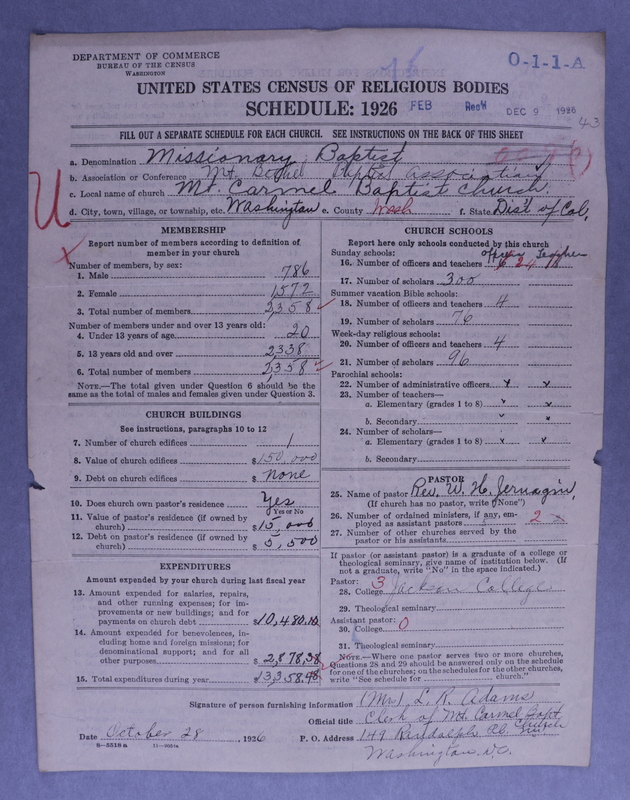 DEPARTMENT OF COMMERCE
BUREAU OF THE CENSUS
WASHINGTON
O-1-1-A
UNITED STATES CENSUS OF RELIGIOUS BODIES
SCHEDULE: 1926
FEB Rec'd DEC 9 1926
43
FILL OUT A SEPARATE SCHEDULE FOR EACH CHURCH. SEE INSTRUCTIONS ON THE BACK OF THIS SHEET
a. Denomination Missionary Baptist
b. Association or Conference Mt. Bethel Baptist Association
c. Local name of church Mt. Carmel Baptist Church,
d. City, town, village, or township, etc. Washington e. County Wash f. State Dist of Col,
MEMBERSHIP
Report number of members according to definition of
member in your church
Number of members, by sex:
1. Male 786
2. Female 1572
3. Total number of members 2358
Number of members under and over 13 years old:
4. Under 13 years of age 20
5. 13 years old and over 2338
6. Total number of members 2358
NOTE.—The total given under Question 6 should be the
same as the total of males and females given under Question 3.
CHURCH BUILDINGS
See instructions, paragraphs 10 to 12
7. Number of church edifices 1
8. Value of church edifices $150,000
9. Debt on church edifices $ none
10. Does church own pastor's residence Yes
(Yes or No)
11. Value of pastor's residence (if owned by
church) $15,000
12. Debt on pastor's residence (if owned by
church) $5,500
EXPENDITURES
Amount expended by your church during last fiscal year
13. Amount expended for salaries, repairs,
and other running expenses; for im-
provements or new buildings; and for
payments on church debt $10,480.10
14. Amount expended for benevolences, in-
cluding home and foreign missions; for
denominational support; and for all
other purposes $2,878,38
15. Total expenditures during year $13,358.48
CHURCH SCHOOLS
Report here only schools conducted by this church
Sunday schools:
16. Number of officers and teachers 6 24 18
17. Number of scholars 300
Summer vacation Bible schools:
18. Number of officers and teachers 4
19. Number of scholars 76
Week-day religious schools:
20. Number of officers and teachers 4
21. Number of scholars 96
Parochial schools:
22. Number of administrative officers x x
23. Number of teachers—
a. Elementary (grades 1 to 8) x x
b. Secondary x x
24. Number of scholars—
a. Elementary (grades 1 to 8) x x
b. Secondary
PASTOR
25. Name of pastor Rev. W. H. Jernagin,
(If church has no pastor, write "None")
26. Number of ordained ministers, if any, em-
ployed as assistant pastors 2
27. Number of other churches served by the
pastor or his assistants
If pastor (or assistant pastor) is a graduate of a college or
theological seminary, give name of institution below. (If
not a graduate, write "No" in the space indicated.)
Pastor: 3
28. College Jackson College
29. Theological seminary
Assistant pastor: 0
30. College
31. Theological seminary
NOTE.—Where one pastor serves two or more churches,
Questions 28 and 29 should be answered only on the schedule
for one of the churches; on the schedules for the other churches,
write "See schedule for church."
Signature of person furnishing information (Mr) L. R. Adams
Official title Clerk of Mt. Carmel Bapt Church
Date October 28, 1926 P. O. Address 149 Randolph Pl. NW
Washington, D.C.
8—5518 a